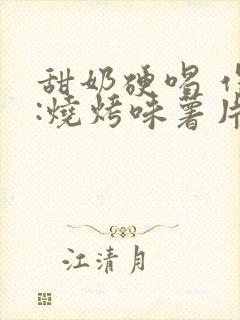 甜奶硬唱
:燒烤味薯片
江清月